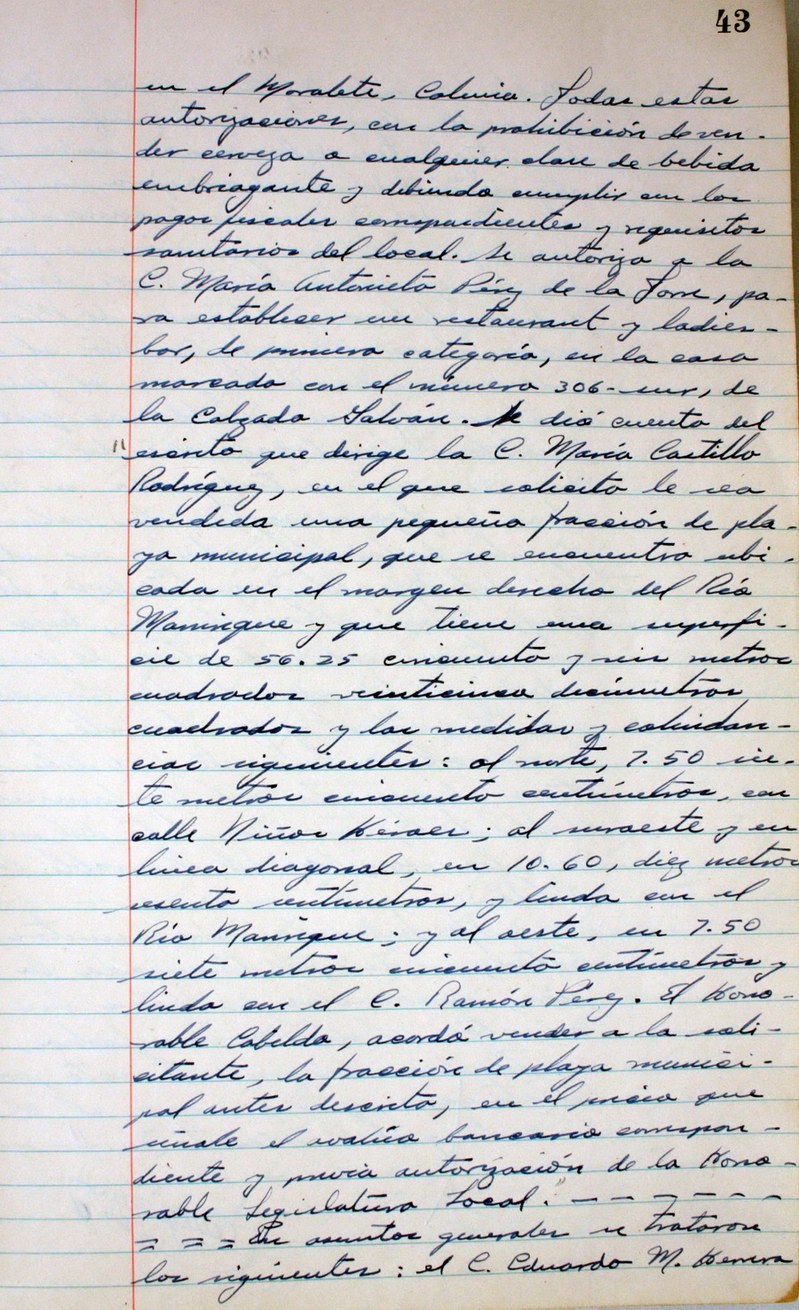 43
en el Moralete, Colima. Todas estas
autorizaciones, con la prohibición de ven-
der cerveza o cualquier clase de bebida
embriagante y debiendo cumplir con los
pagos fiscales correspondientes y requisitos
sanitarios del local. Se autoriza a la
C. María Antonieta Pérez de la Torre, pa-
ra establecer un restaurant y ladies-
bar, de primera categoría, en la casa
marcada con el número 306-sur, de
la Calzada Galván. Se dió cuenta del
" escrito que dirige la C. María Castillo
Rodríguez, en el que solicita le sea
vendida una pequeña fracción de pla-
ya municipal, que se encuentra ubi-
cada en el margen derecho del Río
Manrique y que tiene una superfi-
cie de 56.25 cincuenta y seis metros
cuadrados veinticinco decímetros
cuadrados y las medidas y colindan-
cias siguientes: al norte, 7.50 sie-
te metros cincuenta centímetros, con
calle Niños Héroes; al suroeste y en
línea diagonal, en 10.60, diez metros
sesenta centímetros, y linda con el
Río Manrique; y al oeste, en 7.50
siete metros cincuenta centímetros y
linda con el C. Ramón Pérez. El Hono-
rable Cabildo, acordó vender a la soli-
citante, la fracción de playa munici-
pal antes descrita, en el precio que
señale el avalúo bancario correspon-
diente y previa autorización de la Hono-
rable Legislatura Local." - - - - - - -
= = = En asuntos generales se trataron
los siguientes: el C. Eduardo M. Herrera